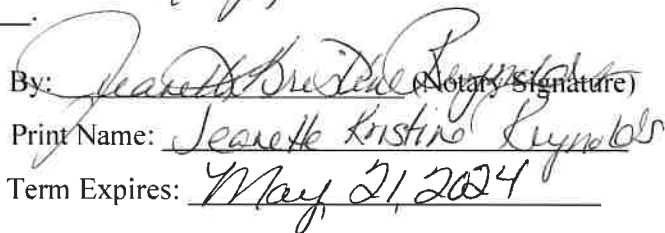 By: Jeanette Kristine Reynolds (Notary Signature)
Print Name: Jeanette Kristine Reynolds
Term Expires: May, 21, 2024